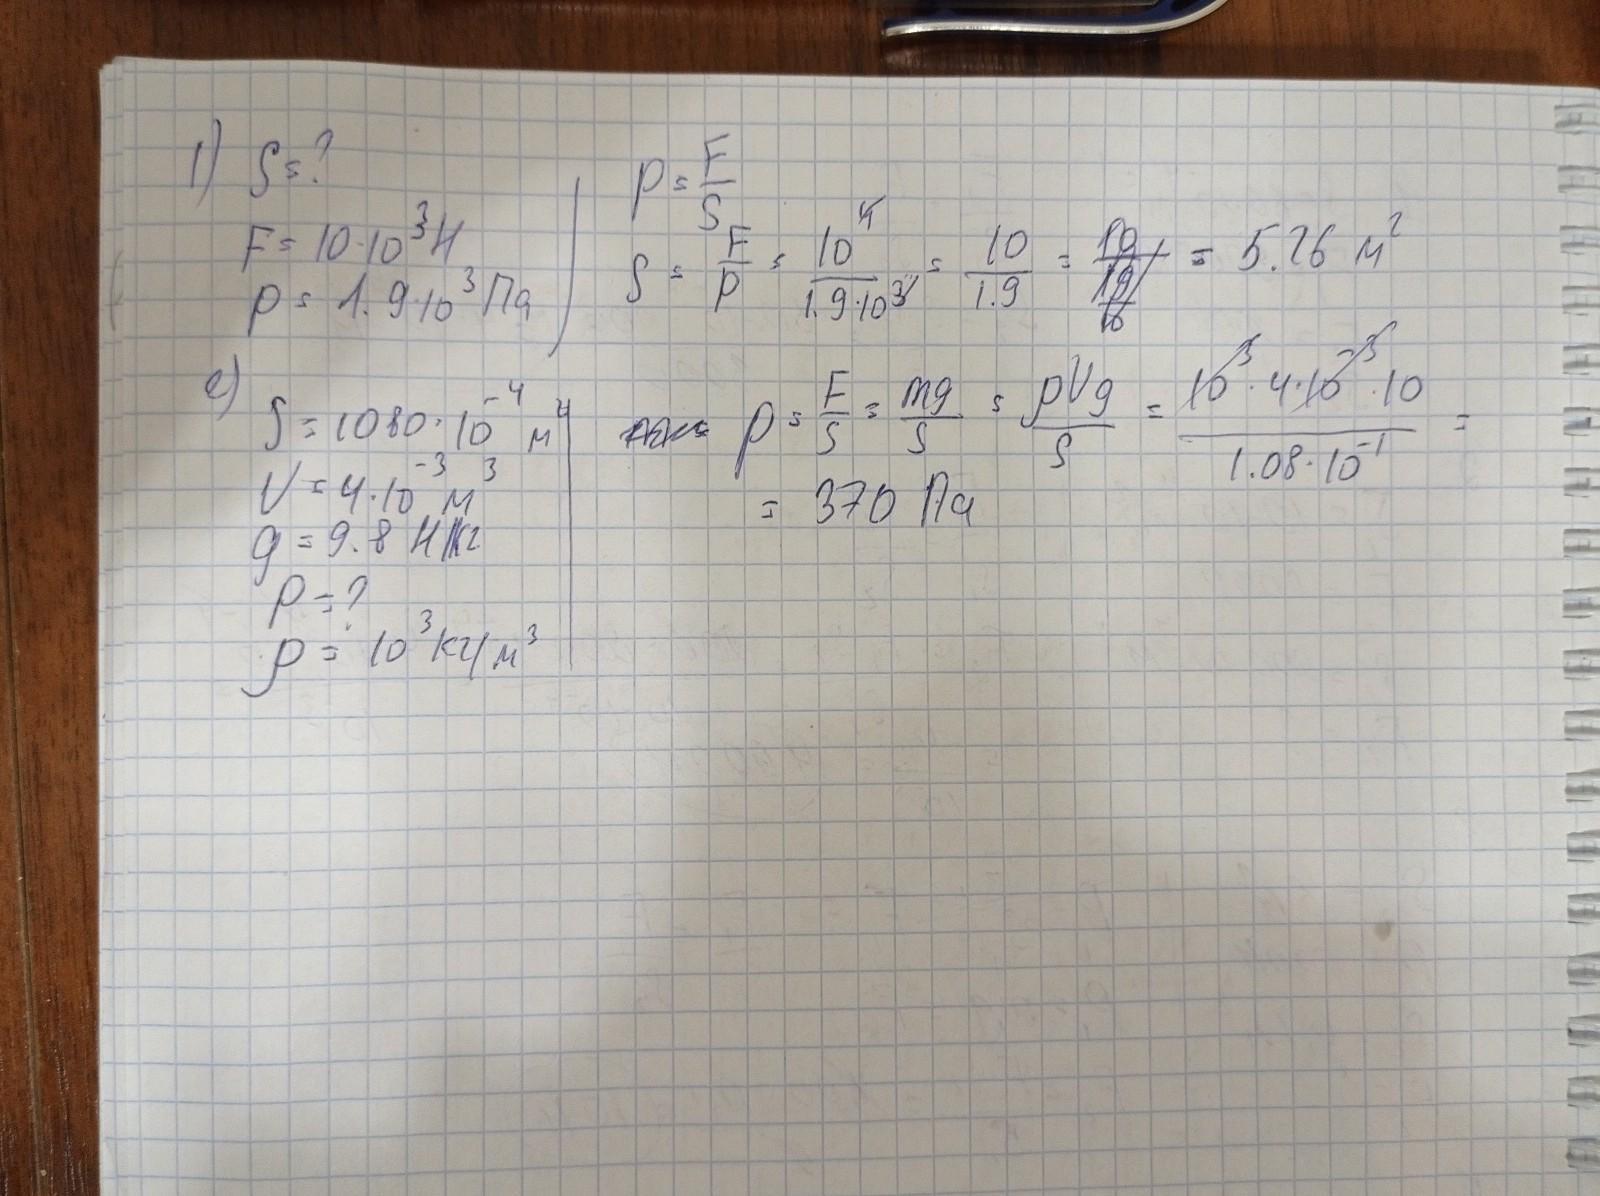 1) S = ?
F = 10·10³ Н
p = 1.9·10³ Па
p = F/S
S = F/p = 10⁴/1.9·10³ = 10/1.9 = = 5.26 м²
2) S = 1080·10⁻⁴ м²
V = 4·10⁻³ м³
g = 9.8 Н/кг
p = ?
ρ = 10³ кг/м³
p = F/S = mg/S = ρVg/S = 10³·4·10⁻³·10/1.08·10⁻¹ =
= 370 Па